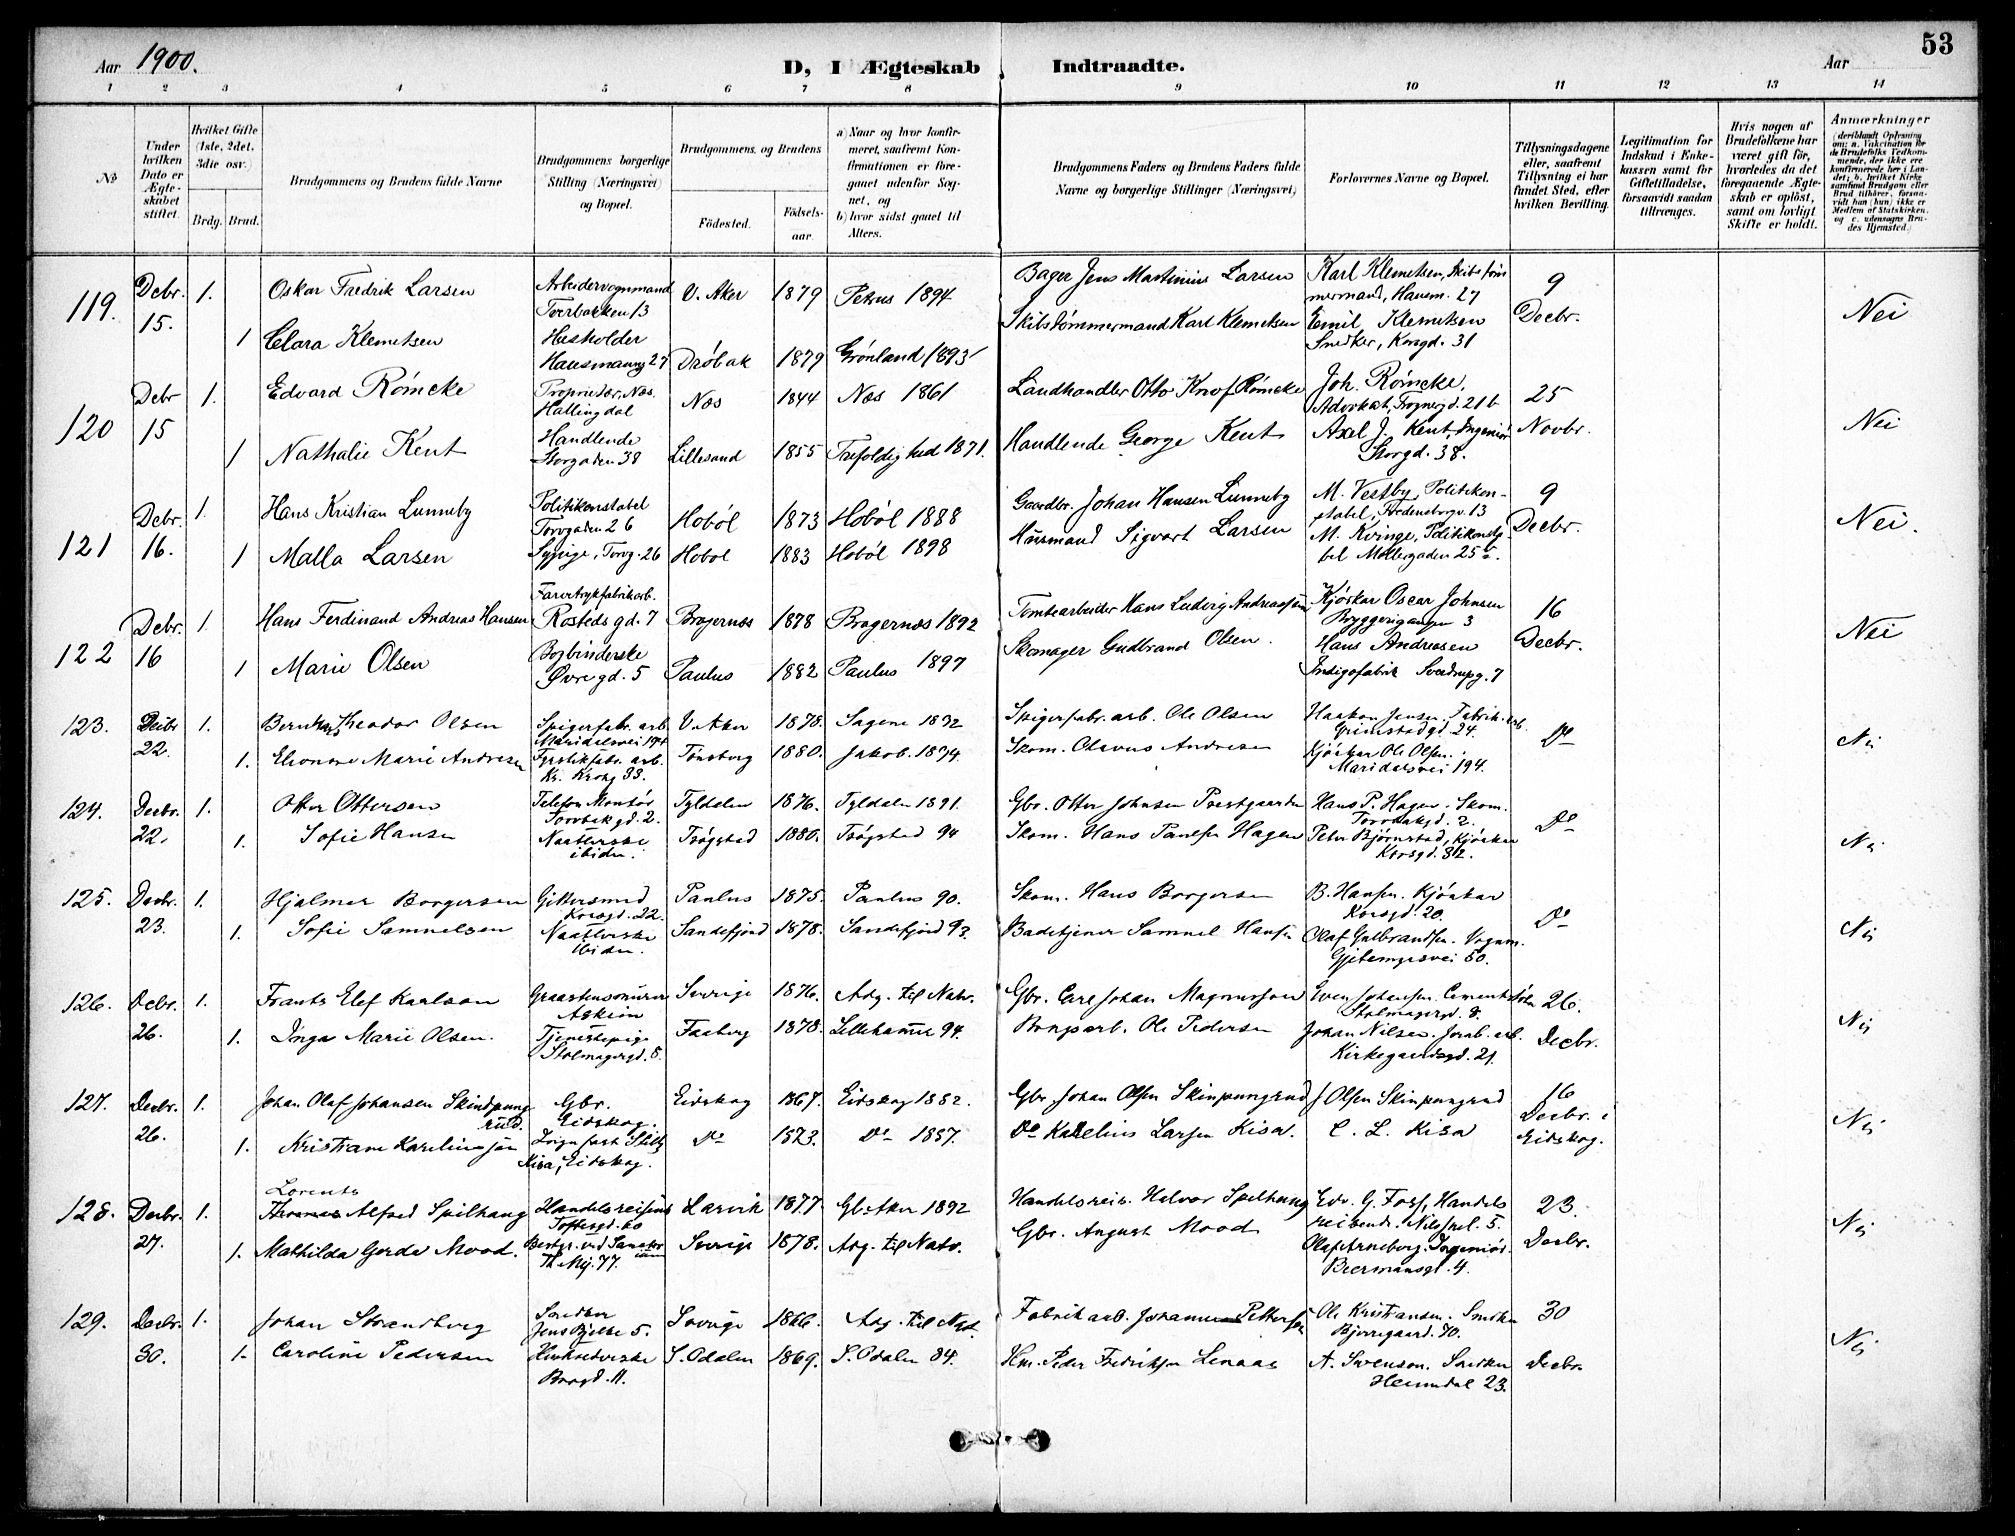 Aar 1900.
D, I Ægteskab Indtraadte.
Aar
53
1 2 3 4 5 6 7 8 9 10 11 12 13 14
No
Under hvilken Dato er Ægteskabet stiftet.
Hvilket Gifte (1ste, 2det, 3die osv.)
Brdg. Brud.
Brudgommens og Brudens fulde Navne
Brudgommens borgerlige Stilling (Næringsvei) og Bopæl.
Brudgommens og Brudens
Födested.
Födselsaar.
a) Naar og hvor konfirmeret, saafremt Konfirmationen er foregaaet udenfor Sognet, og
b) hvor sidst gaaet til Alters.
Brudgommens Faders og Brudens Faders fulde Navne og borgerlige Stillinger (Næringsvei)
Forlovernes Navne og Bopæl.
Tillysningsdagene eller, saafremt Tillysning ei har fundet Sted, efter hvilken Bevilling.
Legitimation for Indskud i Enkekassen samt for Giftetilladelse, forsaavidt saadan tiltrænges.
Hvis nogen af Brudefolkene har været gift för, hvorledes da det foregaaende Ægteskab er oplöst, samt om lovligt Skifte er holdt.
Anmærkninger (deriblandt Oplysning om: a. Vakcination for de Brudefolks Vedkommende, der ikke ere konfirmerede her i Landet; b. hvilket Kirkesamfund Brudgom eller Brud tilhører, forsaavidt han (hun) ikke er Medlem af Statskirken, og c. udensogns Brudes Hjemsted.)
119. Decbr. 15. 1. Oskar Fredrik Larsen Arbeidervognmand Tverbakken 13 V. Aker 1879 Petrus 1894 Bager Jens Martinius Larsen Karl Klemetsen, Skibstømmermand, Hausm. 27 9 Decbr. Nei
1 Clara Klemetsen Husholder Hausmannsg 27 Drøbak 1879 Grønland 1893 Skibstømmermand Karl Klemetsen Emil Klemetsen Snedker, Korsgd. 31
120 Debr 15 1. Edvard Rømcke Proprietær, Næs. Hallingdal Næs 1844 Næs 1861 Landhandler Otto Knof Rømcke Joh. Rømcke, Advokat, Frognergd. 21b 25 Novbr. Nei
1 Nathalie Kent Handlende Storgaden 38 Lillesand 1855 Trefoldighed 1871. Handlende George Kent Axel J. Kent, Ingeniør Storgd. 38.
121 Debr. 16. 1. Hans Kristian Lunneby Politikonstabel Torvgaden 26 Hobøl 1873 Hobøl 1888 Gaardbr. Johan Hansen Lunneby M. Vestby, Politikonstabel, Fredensborgv. 13 9 Decbr. Nei.
1 Malla Larsen Sypige, Torvg. 26 Hobøl 1883 Hobøl 1898 Husmand Sigvart Larsen M. Kvinge, Politikonstabel Møllergaden 25
122 Debr. 16 1. Hans Ferdinand Andreas Hansen Farvetrykfabrikarb. Rosteds gd. 7 Bragernæs 1878 Bragernæs 1892 Tomtearbeider Hans Ludvig Andreassen Kjøskar Oscar Johnsen Bryggerigangen 3 16 Decbr. Nei
1 Marie Olsen Bogbinderske Øvregd. 5 Paulus 1882 Paulus 1897 Skomager Gudbrand Olsen. Hans Andreasen Indigofabrik Sverdrupg. 7
123. Decbr 22. 1. Theodor Olsen Spigerfabr. arb. Maridalsvei 194 V. Aker 1878. Sagene 1892 Spigerfabr. arb. Ole Olsen Haakon Jensen. Fabrik.arb. Grimstadgd. 24. Do Nei
1. Elenore Marie Andresen Fyrstikfabr. arb. Kr. Krohg 33. Tønsberg 1880. Jakob. 1894. Skom. Olavus Andresen Kjøskar Ole Olsen. Maridalsvei 194.
124. Decbr. 22. 1. Otter Ottersen Telefon Montør Torvbakgd. 2. Tyldalen 1876. Tyldalen 1891. Gbr. Otter Johnsen Prestgaarden Hans P. Hagen. Skom. Torvbakgd. 2. Do Nei
1. Sofie Hansen Naatlerske ibidm. Trøgstad 1880. Trøgstad 94 Skom. Hans Paulsen Hagen Peter Bjørnstad, Kjøskar Korsgd. 32.
125. Decbr. 23. 1. Hjalmar Borgersen Gittersmed Korsgd. 22. Paulus 1875. Paulus 90. Skom. Hans Borgersen B. Hansen. Kjøskar Korsgd. 20. Do Nei
1. Sofie Samuelsen Naatlerske Ibidm. Sandefjord 1878. Sandefjord 93. Badetjener Samuel Hansen Olaf Gulbrandsen. Vognm. Gjetemyrsvei 50.
126. Dcbr. 26. 1. Frantz Elef Karlson Graastensmurer Askim Sverige 1876. Adg. til Natv. Gbr. Carl Johan Magnusson Even Johansen. Cementstøber Stolmagergd. 8. 26. Decbr. Nei
1. Inga Marie Olsen. Tjenestepige Stolmagergd. 8. Faaberg 1878. Lillehammer 94. Brugsarb. Ole Pedersen Johan Nilsen. Jernb. arb. Kirkegaardsgd. 21.
127. Decbr. 26. 1. Johan Olaf Johansen Skindpungrud. Gbr. Eidskog. Eidskog 1867. Eidskog 1882. Gbr. Johan Olsen Skinpungrud J Olsen Skinpungrud 16 Decbr. i Eidskog. Nei
1. Kristiane Karelius Kisa, Eidskog. Do 1873. Do 1887. Do Karelius Larsen Kisa. C. L. Kisa
128. Decbr. 27. 1. Lorents Alfred Spilhaug Handelsreisende Toftesgd. 60 Larvik 1877 Gl. Aker 1892 Handelsreis. Halvor Spilhaug Edv. G. Foss, Handelsreisende. 5. 23. Decbr. Nei
1. Mathilda Gerda Mood. Th Mej. 77. Sverige 1878. Adg. til Natv. Gbr. August Mood Olaf Arneberg. Ingeniør. Beermansgt. 4.
129. Decbr. 30. 1. Johan Strandberg Snedker Jens Bjelke 5. Sverige 1866. Adg. til Nat. Fabrikarb. Johannes Petterson Ole Kristiansen. Snedker Bjerregaard. 70. 30 Decbr. Nei
1. Caroline Pedersen S. Odalen 1869. S. Odalen 84. Hm. Peder Fredriksen Lenaas A. Swenson. Snedker Heimdal 23.